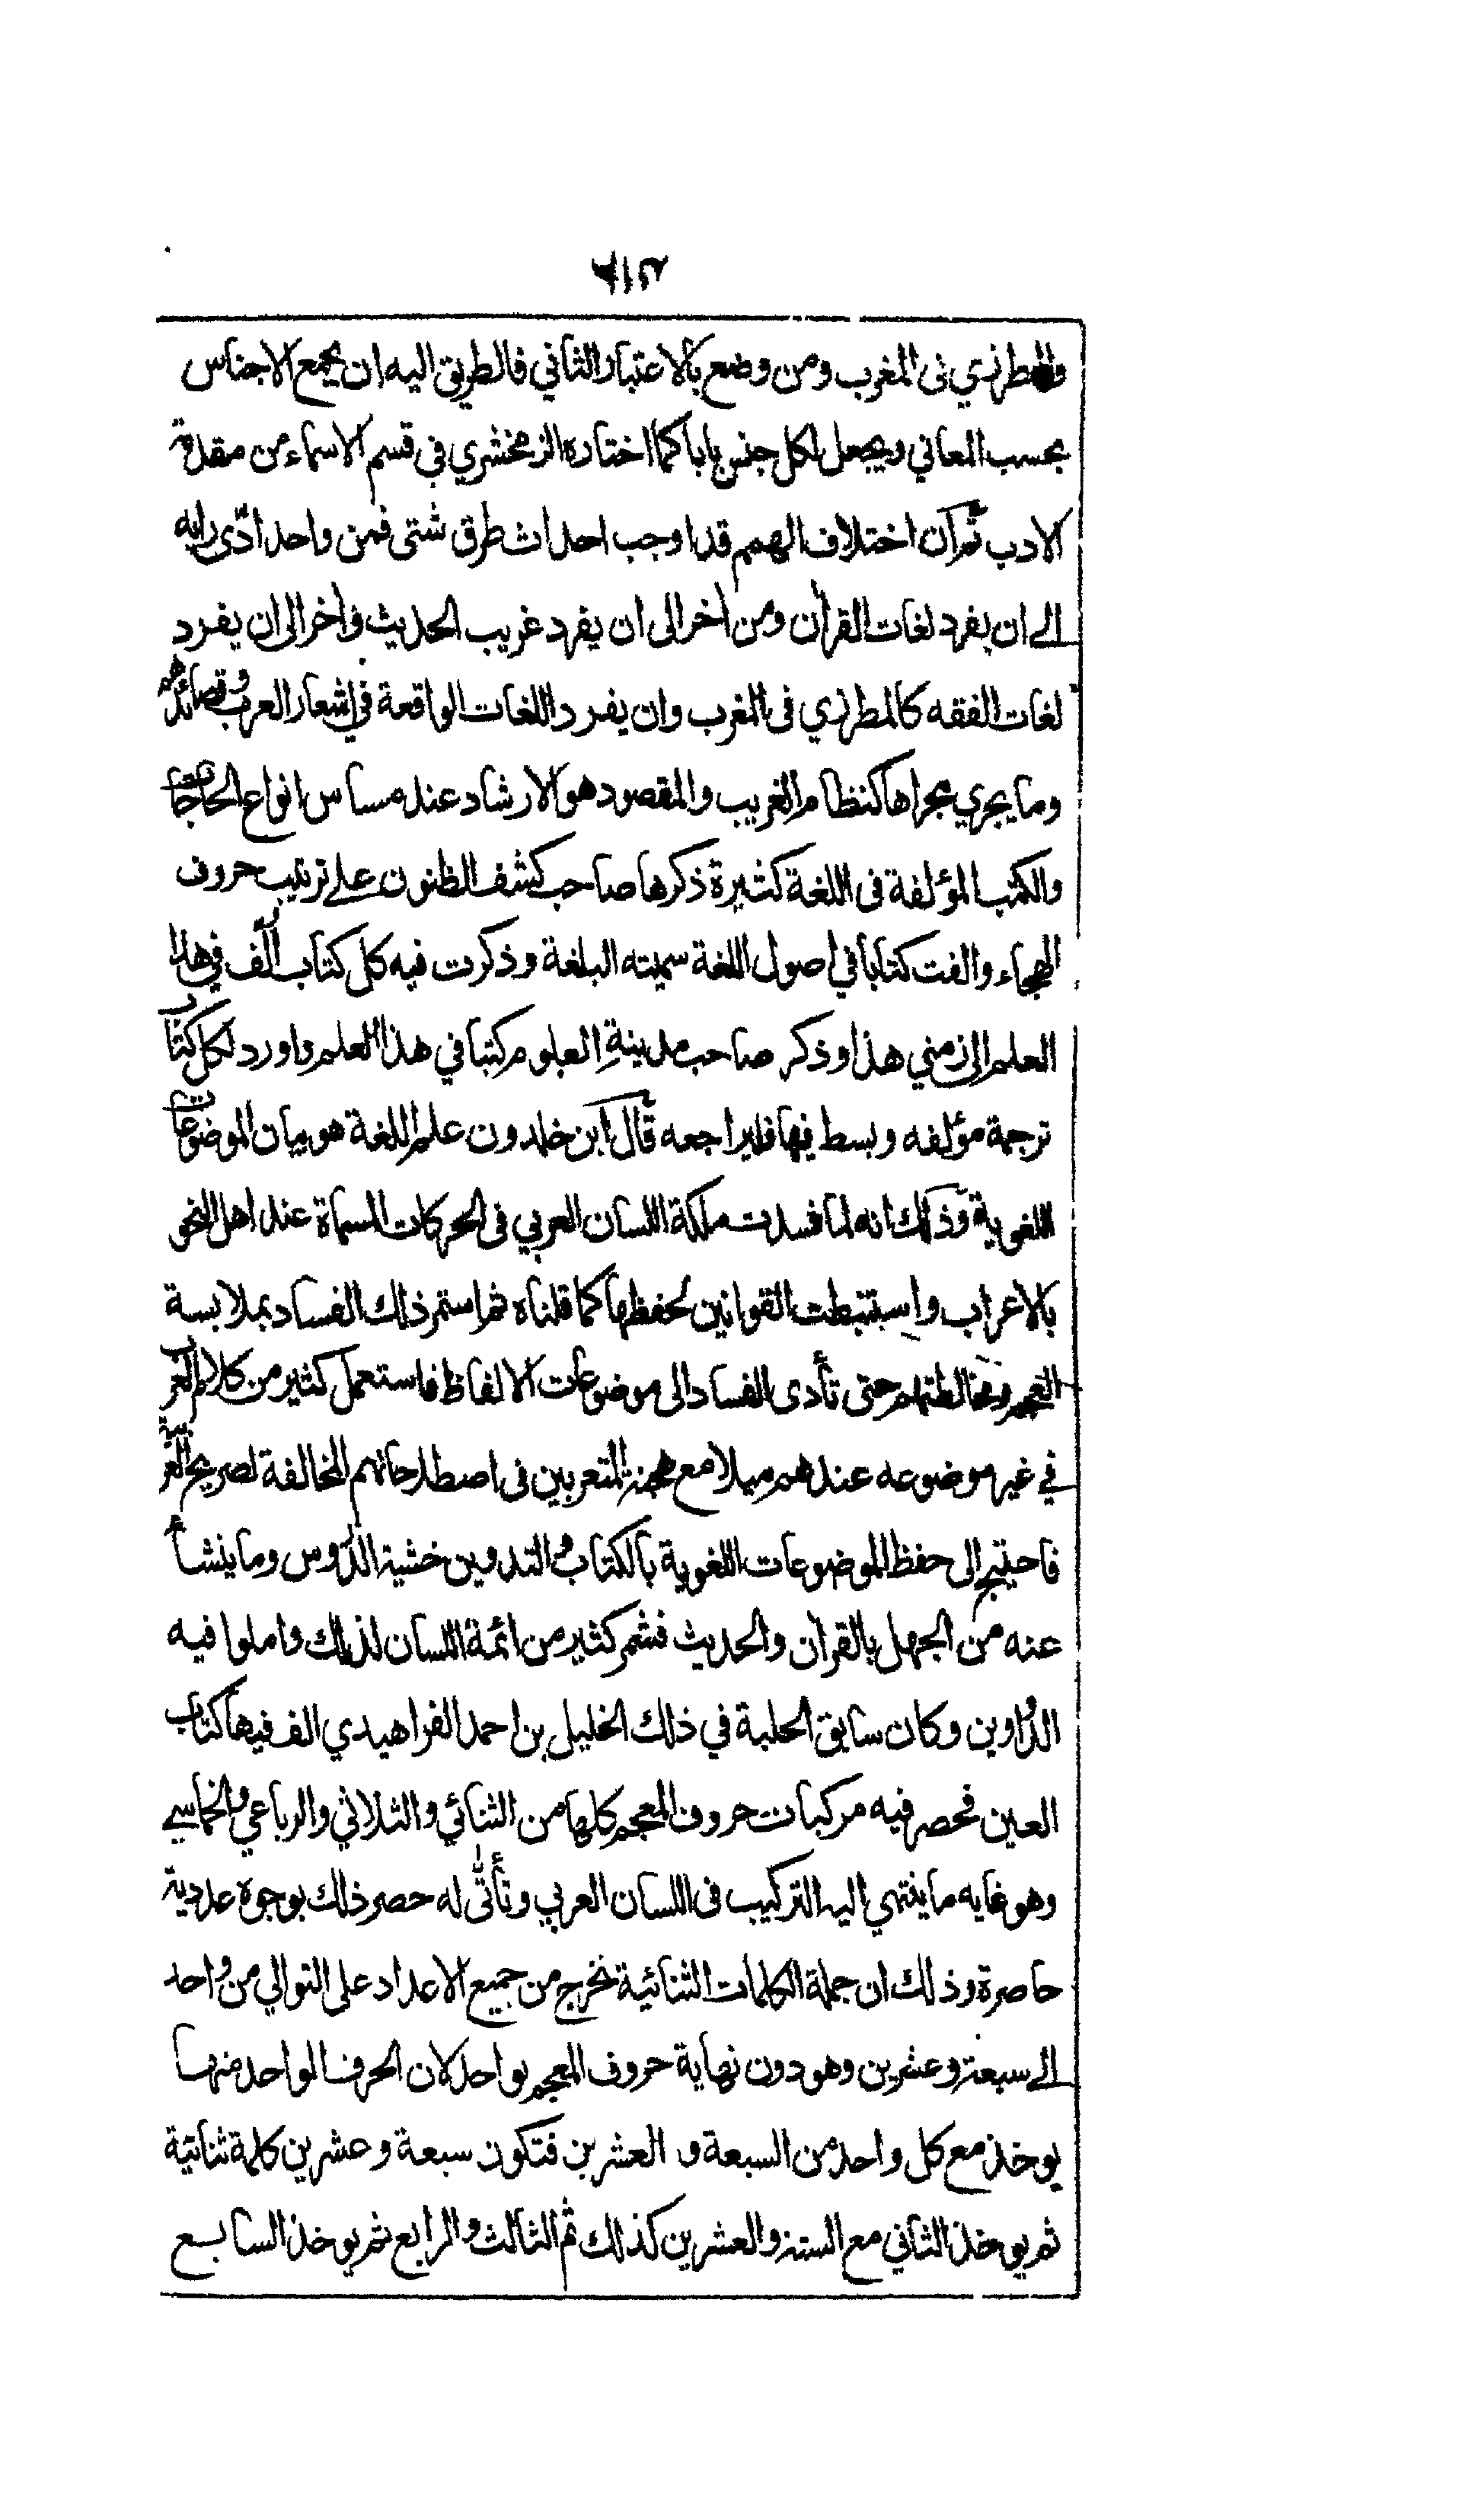 والمطرزي فى المغرب ومن وضع بالاعتبار الثاني فالطريق اليه ان يجمع الاجناس
بحسب المعاني ويجعل لكل جنس بابا كما اختاره الزمخشري في قسم الاسماء من مقدمة
الادب ثم ان اختلاف الهمم قد اوجب احداث طرق شتى فمن واحد ادّى رايه
الى ان يفرد لغات القران ومن اخر الى ان يفرد غريب الحديث واخر الى ان يفرد
لغات الفقه كالمطرزي فى المغرب وان يفرد اللغات الواقعة في اشعار العرب وقصائدهم
وما يجري مجراها كنظام الغريب والمقصود هو الارشاد عند مساس انواع الحاجات
والكتب المؤلفة فى اللغة كثيرة ذكرها صاحب كشف الظنون على ترتيب حروف
الهجاء والفت كتابا في اصول اللغة سميته البلغة وذكرت فيه كل كتاب أُلّف في هذا
العلم الى زمني هذا وذكر صاحب مدينةِ العلوم كتبا في هذا العلم واورد لكل كتاب
ترجمة مؤلفه وبسط فيها فليراجعه قال ابن خلدون علم اللغة هو بيان الموضوعات
اللغوية وذلك انه لما فسدت ملكة اللسان العربي فى الحركات المسماة عند اهل النحو
بالاعراب واستنبطت القوانين لحفظها كما قلناه ثم استمر ذلك الفساد بملابسة
العجم ومخالطتهم حتى تأدى الفساد الى موضوعات الالفاظ فاستعمل كثير من كلام العرب
في غير موضوعه عندهم ميلا مع هجنة المتعربين فى اصطلاحاتهم المخالفة لصريح العربية
فاحتيج الى حفظ الموضوعات اللغوية بالكتاب والتدوين خشية الدُّروس وما ينشأ
عنه من الجهل بالقران والحديث فشمر كثير من ائمة اللسان لذلك واملوا فيه
الدواوين وكان سابق الحلبة في ذلك الخليل بن احمد الفراهيدي الف فيها كتاب
العين فحصر فيه مركبات حروف المعجم كلها من الثنائي والثلاثي والرباعي والخماسي
وهو غايه ما ينتهي اليه التركيب فى اللسان العربي وتأتّى له حصر ذلك بوجوه عددية
حاصرة وذلك ان جملة الكلمات الثنائية تخرج من جميع الاعداد على التوالي من واحد
الى سبعة وعشرين وهو دون نهاية حروف المعجم بواحد لان الحرف الواحد منها
يوخذ مع كل واحد من السبعة و العشرين فتكون سبعة وعشرين كلمة ثنائية
ثم يوخذ الثاني مع الستة والعشرين كذلك ثم الثالث والرابع ثم يوخذ السابع